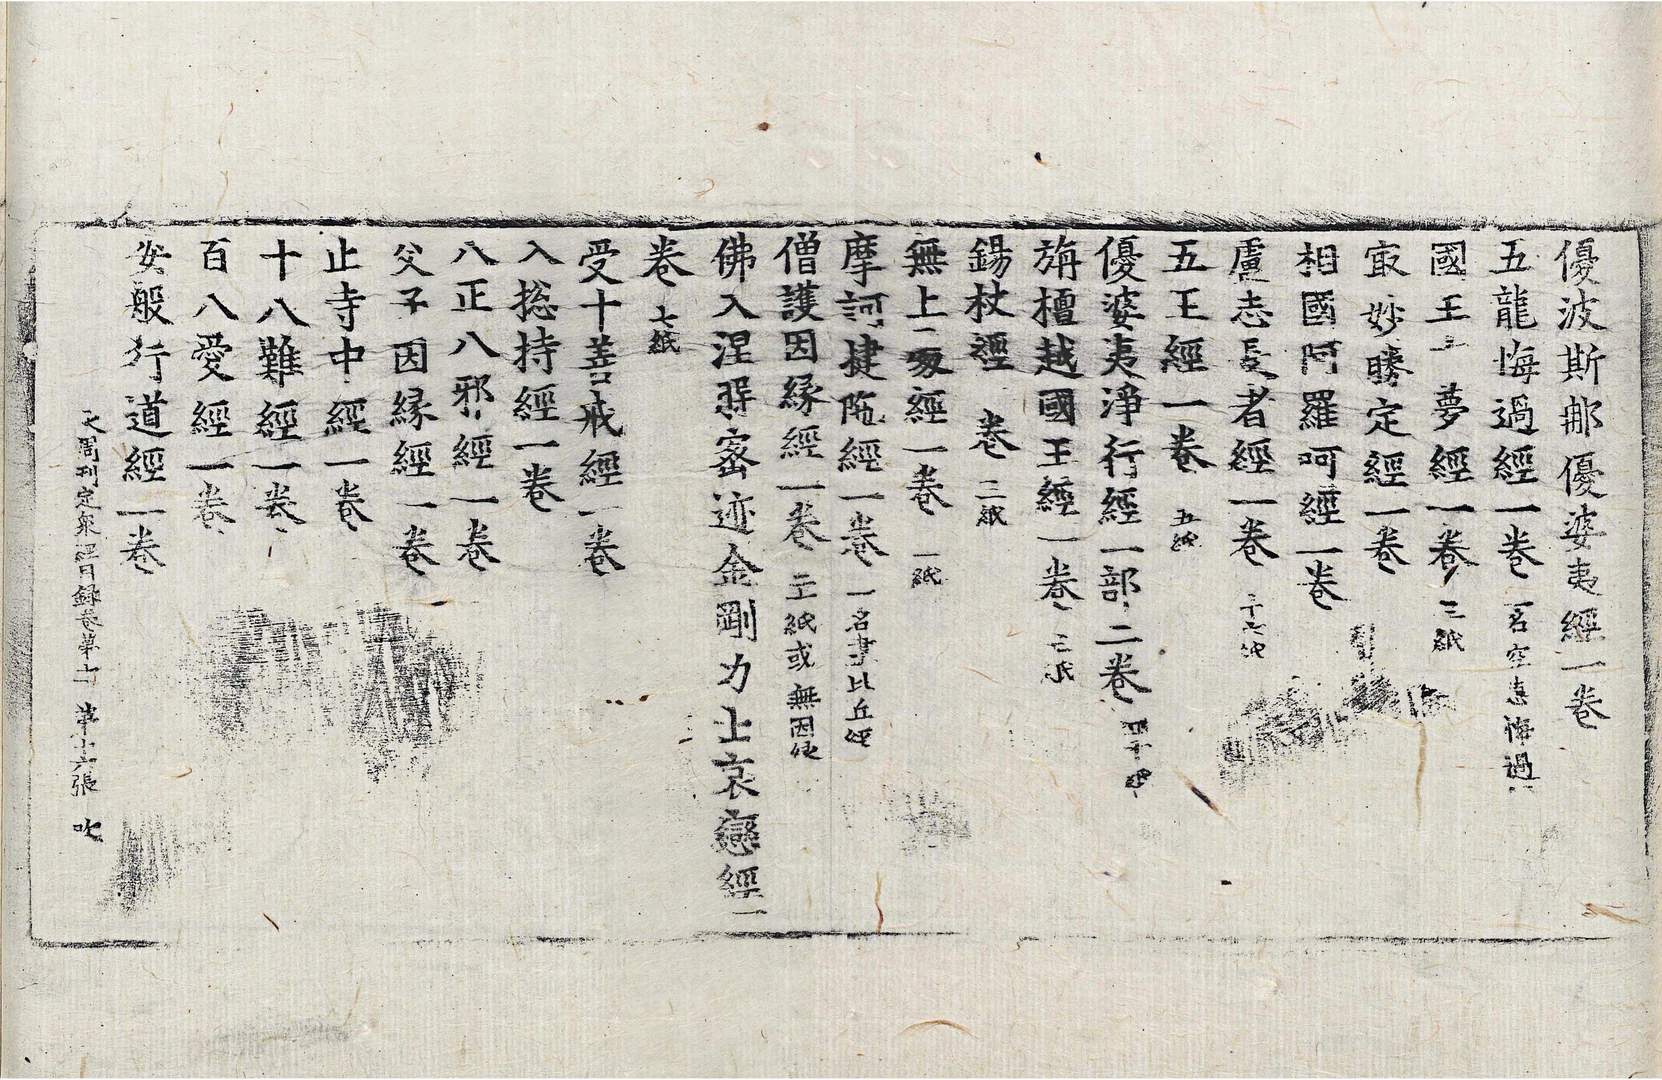 優波斯那優婆夷經一卷
五龍悔過經一卷 一名空慧悔過
國王十夢經一卷 三紙
㝡妙勝定經一卷
相國阿羅呵經一卷
盧志長者經一卷 二十六紙
五王經一卷 五紙
優婆夷淨行經一部二卷 四十紙
旃檀越國王經一卷 三紙
錫杖經一卷 二紙
無上處經一卷 一紙
摩訶揵陁經一卷 一名書比丘經
僧護因緣經一卷 二十紙或無因緣
佛入涅槃密迹金剛力士哀戀經一
卷 七紙
受十善戒經一卷
入捴持經一卷
八正八邪經一卷
父子因緣經一卷
止寺中經一卷
十八難經一卷
百八愛經一卷
安般行道經一卷
大周刊定衆經目錄卷第十一 第十六張 吹